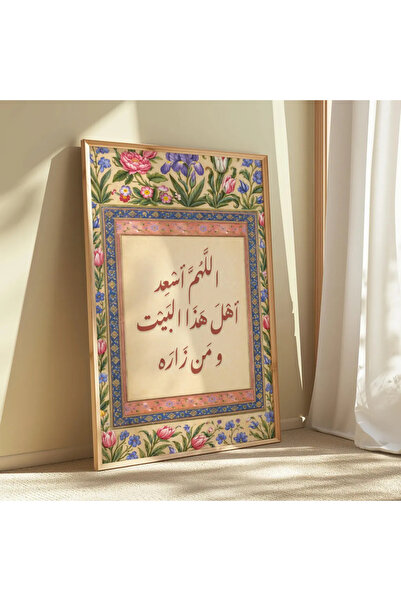 اللَّهُمَّ أسْعِد
أهْلَ هَذَا البَيْت
و مَن زَارَه